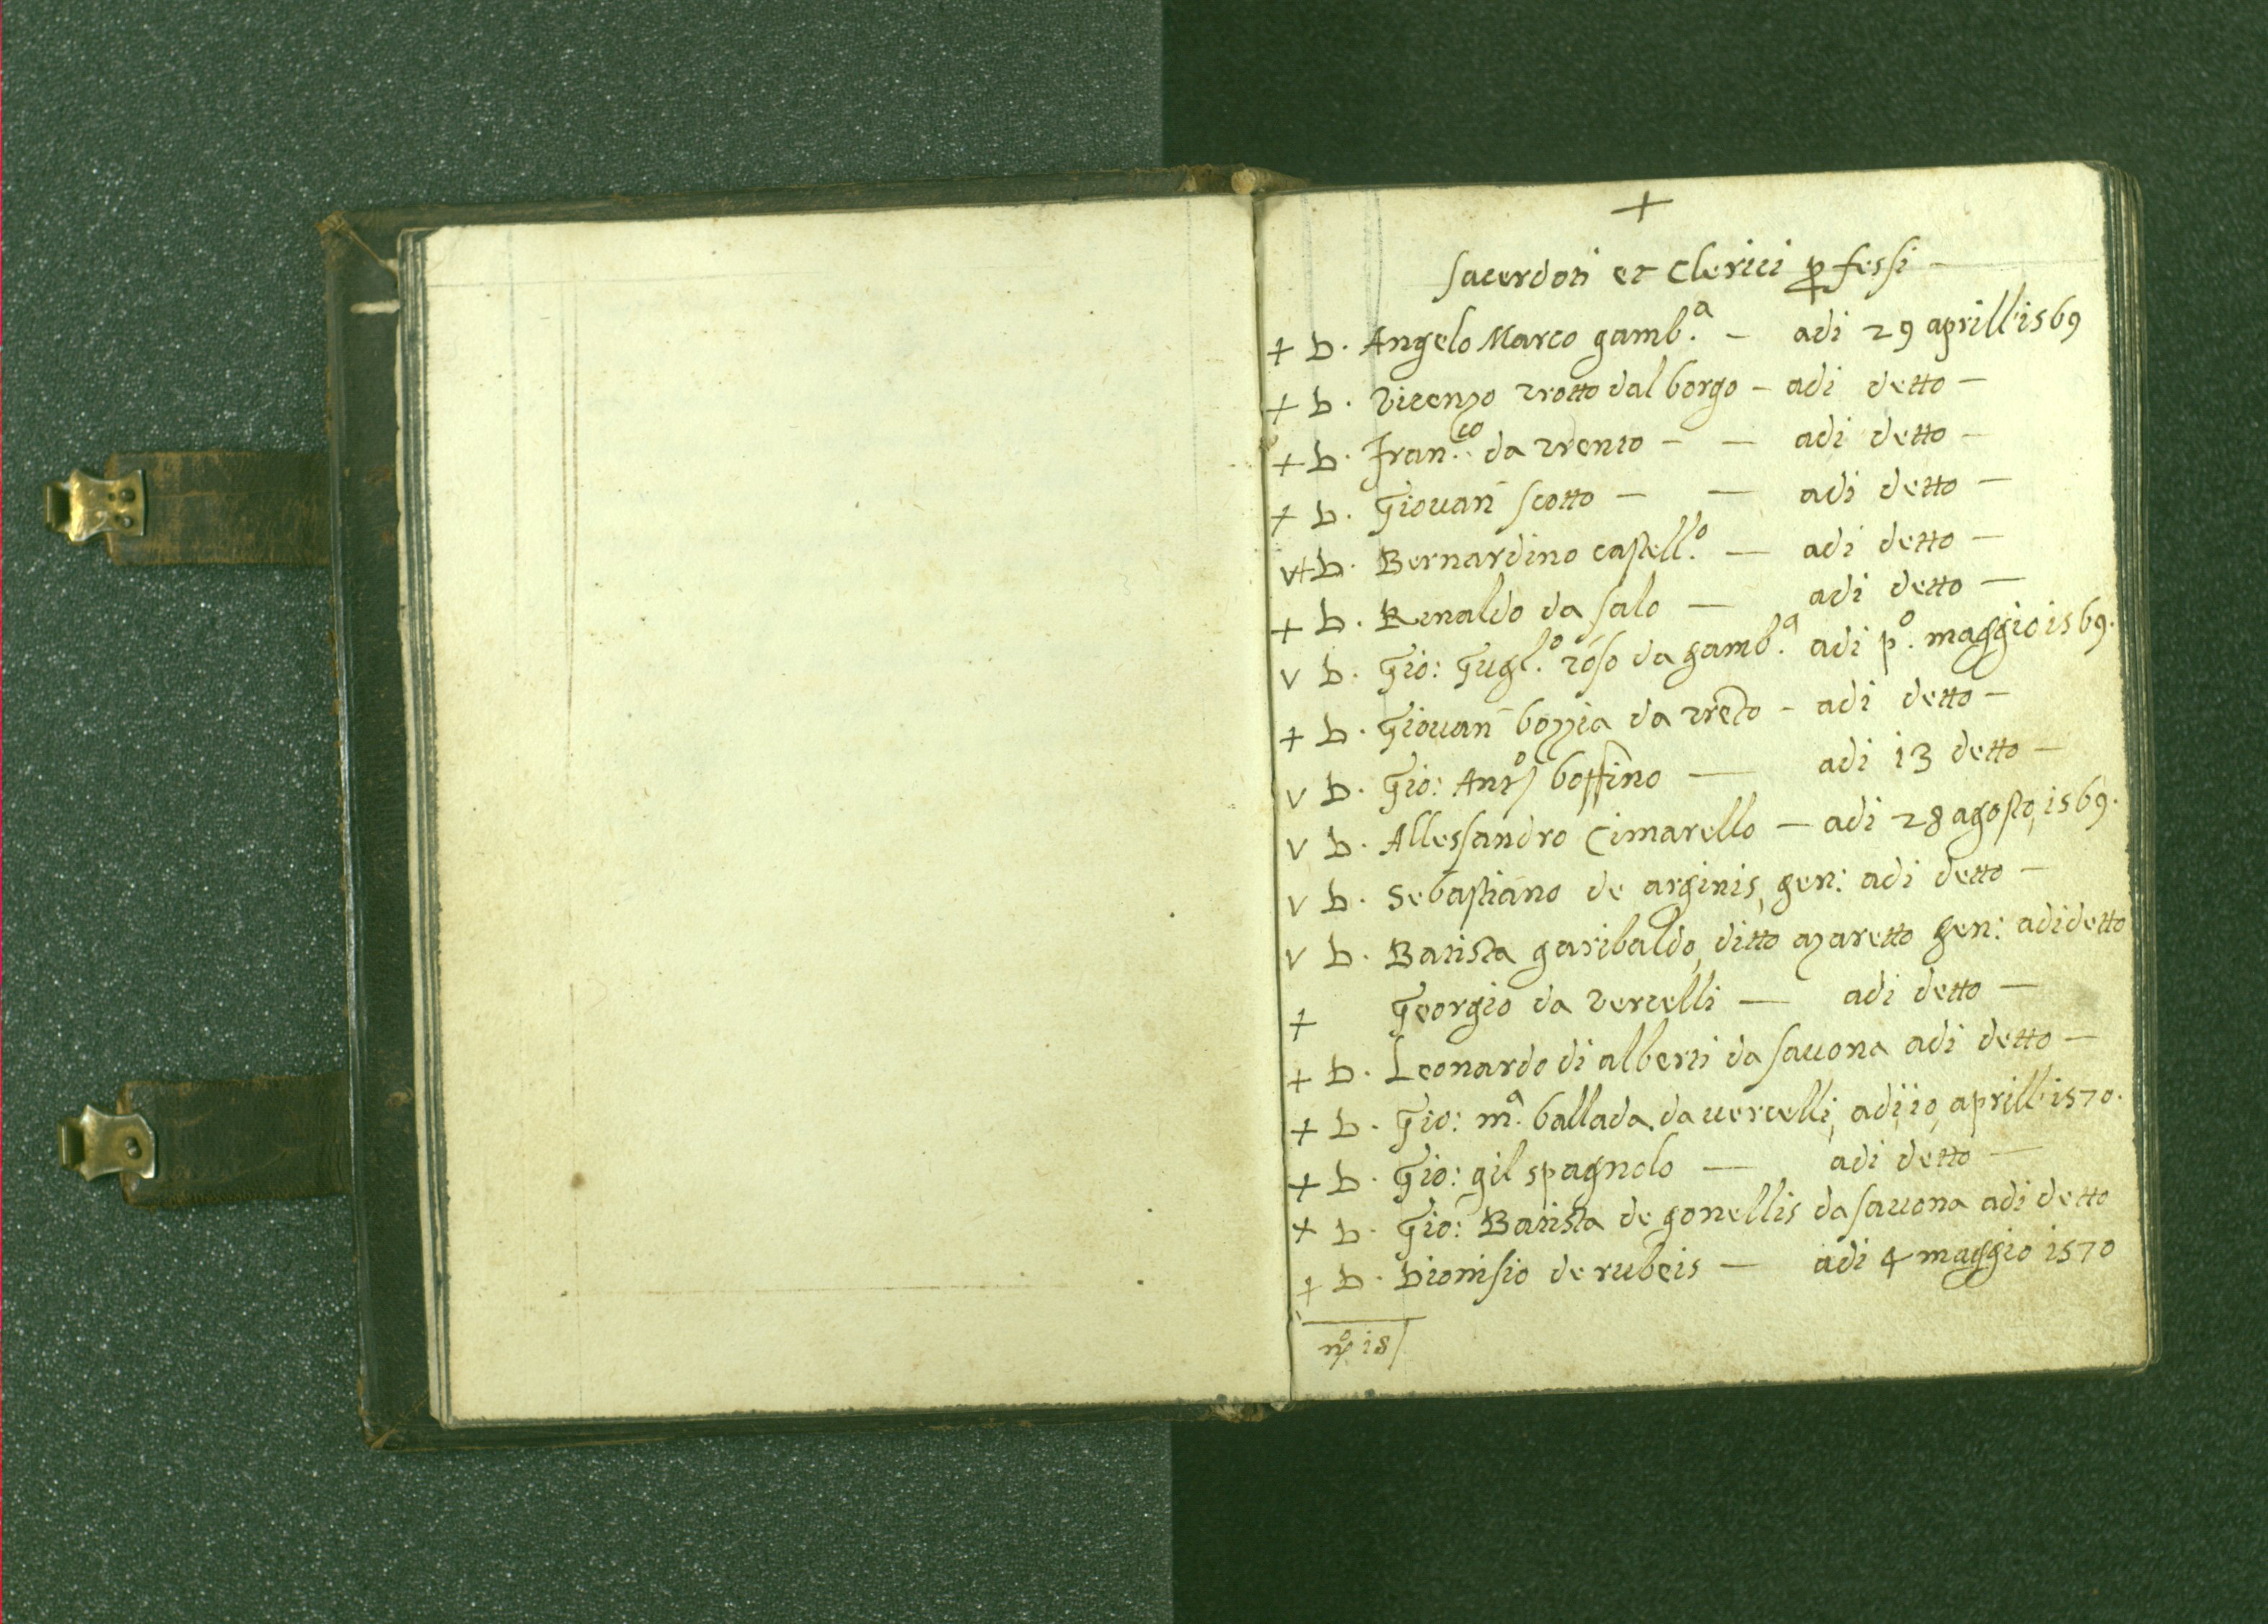 +
Sacerdoti et Clerici ꝓfessi -
+ D. Angelo Marco gamb.ª - adi 29 aprill' 1569
+ D. Vicenzo trotto dal borgo - adi detto -
+ D. Fran.co da trento - - adi detto -
+ D. Giouañ scotto - - adi detto -
v+ D. Bernardino castell.º - adi detto -
+ D. Rinaldo da salo - adi detto -
v D. Gio: Gugl.º toso da gamb.ª adi p.º maggio 1569.
+ D. Giouañ bozzia da trẽto - adi detto -
v D. Gio: Antº boffino - adi 13 detto -
v D. Allessandro Cimarello - adi 28 agosto, 1569.
v D. Sebastiano de arginis, gen: adi detto -
v D. Batista garibaldo, ditto azaretto gen: adi detto
+ Georgio da vercelli - adi detto -
+ D. Leonardo di alberti da sauona adi detto -
+ D. Gio: m.ª ballada da uercelli, adi 10, aprill' 1570.
+ D. Gio: gil spagnolo - adi detto -
+ D. Gio: Batista de gonellis da sauona adi detto
+ D. Dionisio de rubeis - adi 4 maggio 1570
nº 18